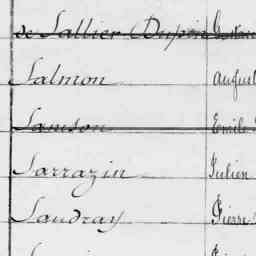 de Lallier Dupin Gustave
Salmon August
Samson Emile
Sarrazin Julien
Saudray Pierre